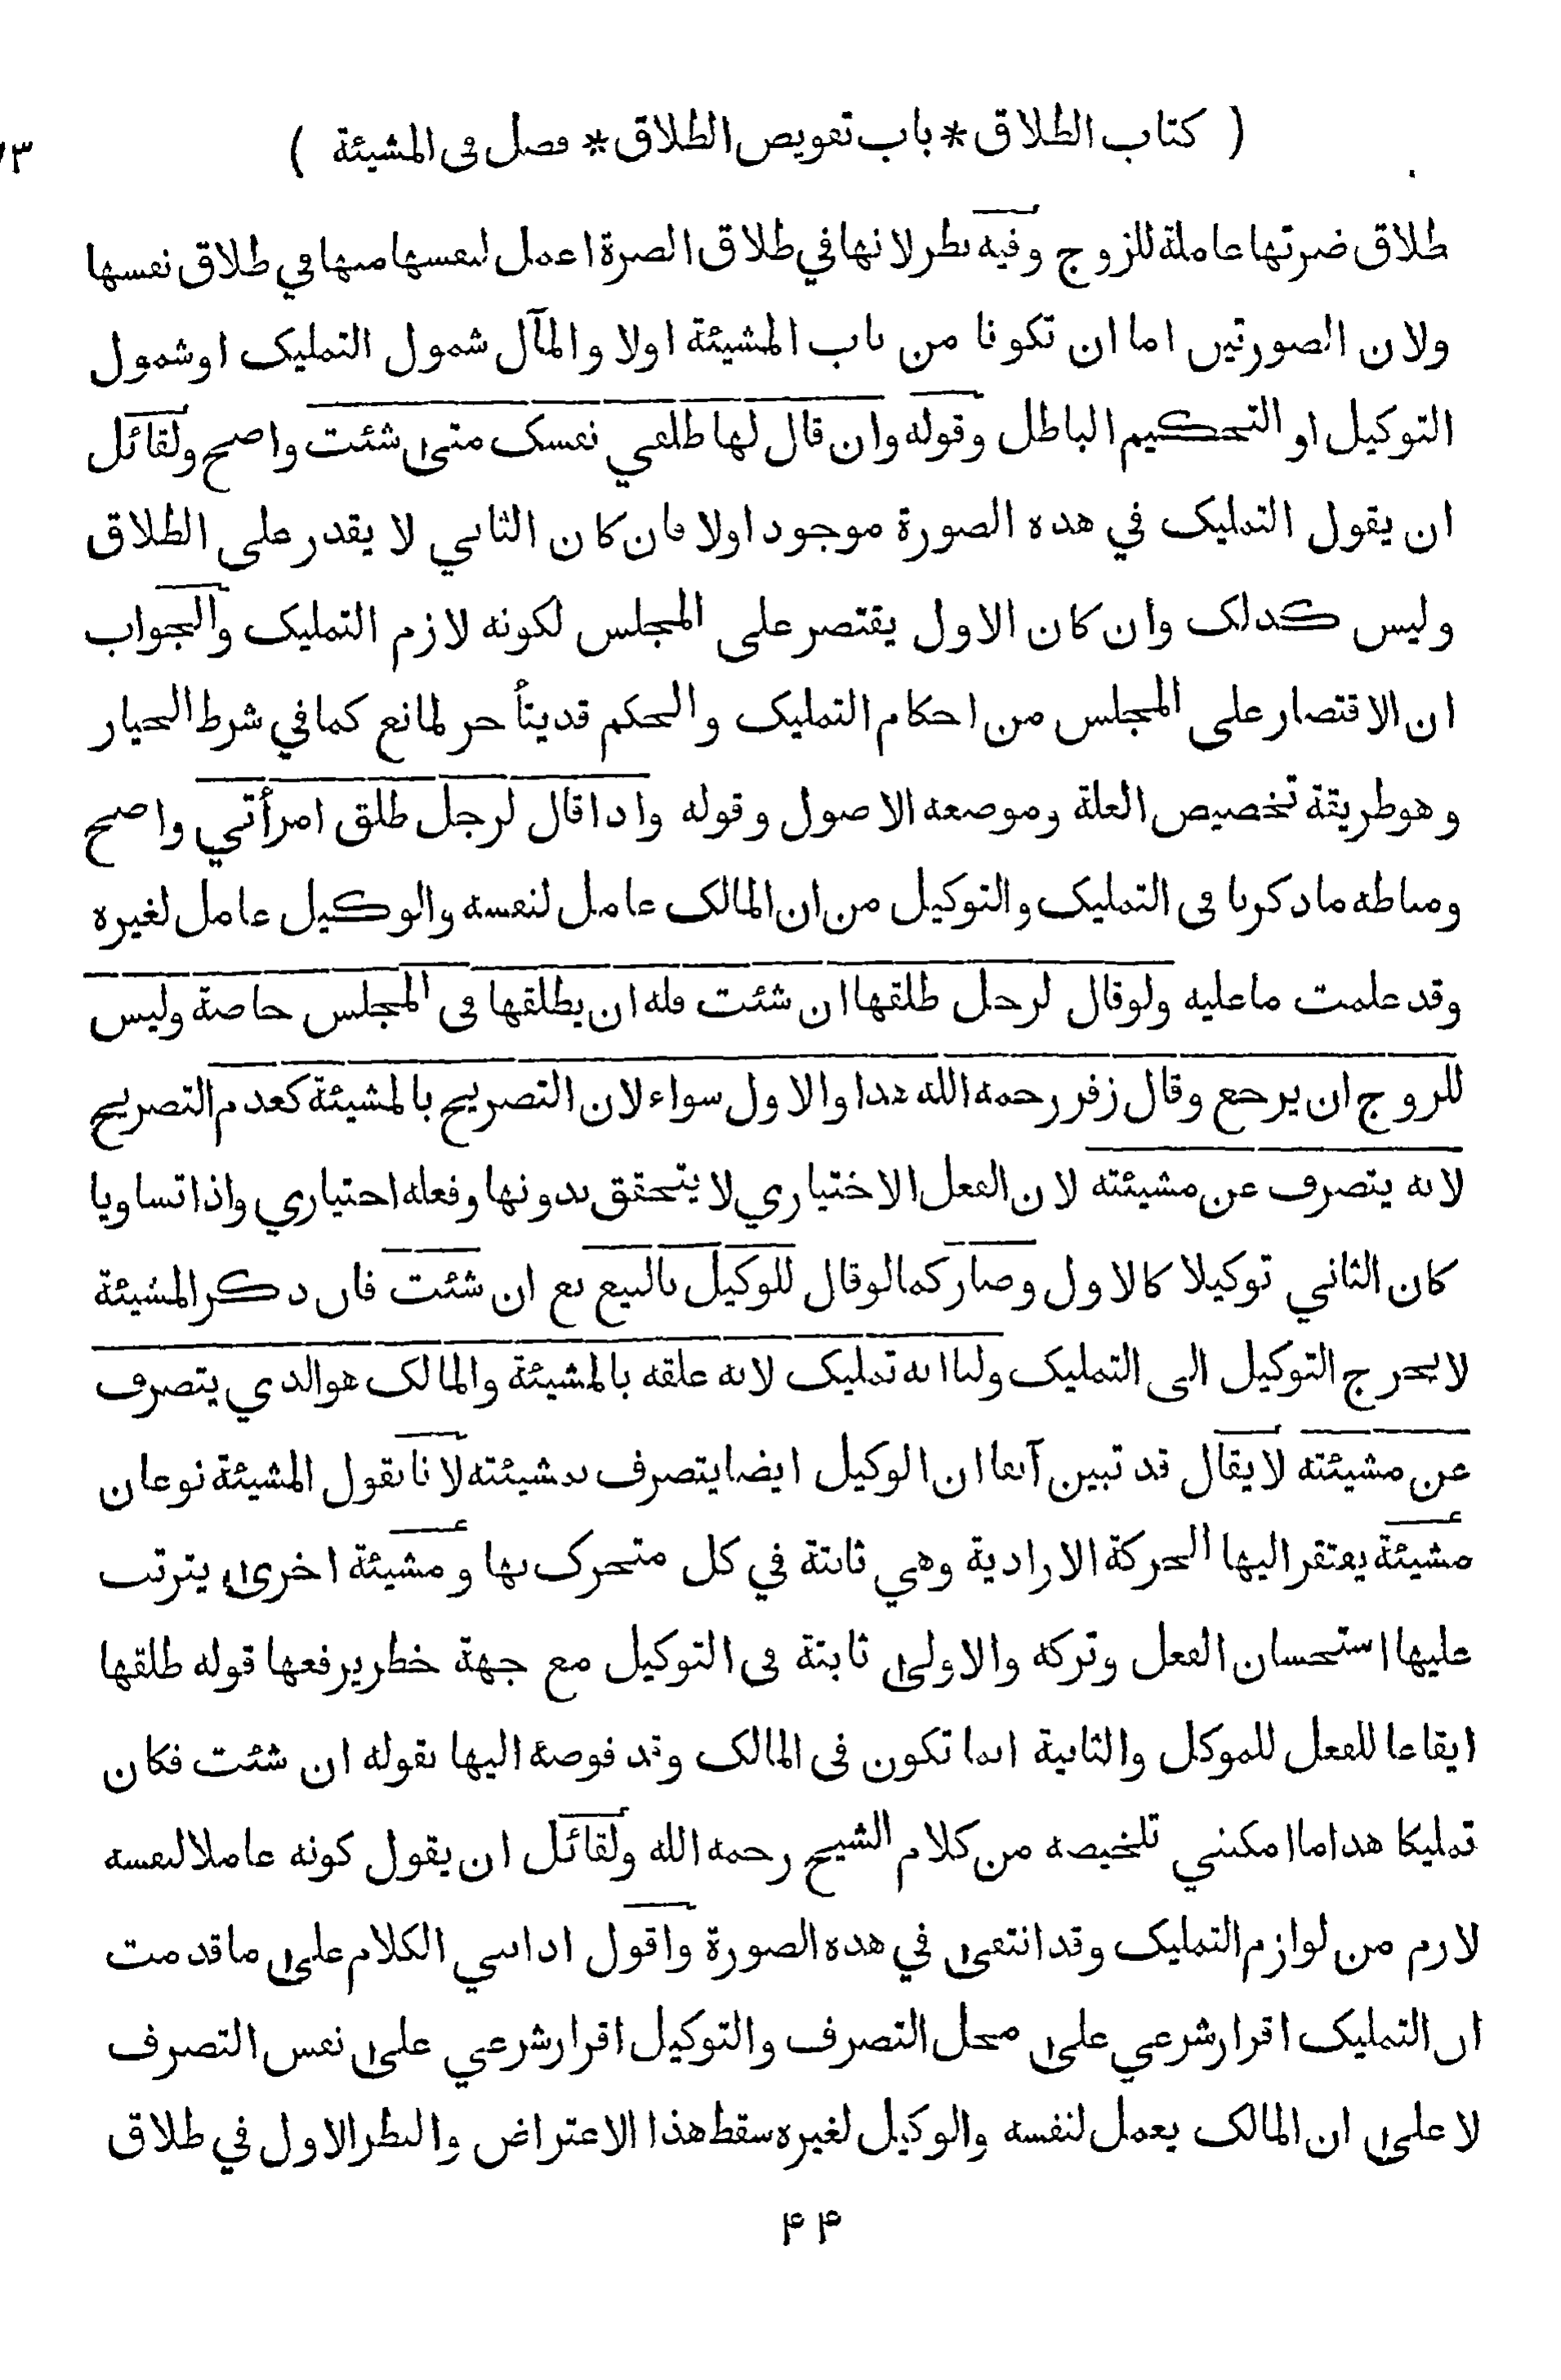 ( كتاب الطلاق * باب تفويض الطلاق * فصل في المشيئة )
طلاق ضرتها عاملة للزوج وفيه نظر لانها في طلاق الضرة اعمل لنفسها منها في طلاق نفسها
ولان الصورتين اما ان تكونا من باب المشيئة اولا والمآل شمول التمليك او شمول
التوكيل او التحكيم الباطل وقوله وان قال لها طلقي نفسك متى شئت واضح ولقائل
ان يقول التمليك في هذه الصورة موجود اولا فان كان الثاني لا يقدر على الطلاق
وليس كذلك وان كان الاول يقتصر على المجلس لكونه لازم التمليك والجواب
ان الاقتصار على المجلس من احكام التمليك والحكم قد يتأخر لمانع كما في شرط الخيار
وهو طريقة تخصيص العلة وموضعه الاصول وقوله واذا قال لرجل طلق امرأتي واضح
ومناطه ما ذكرنا في التمليك والتوكيل من ان المالك عامل لنفسه والوكيل عامل لغيره
وقد علمت ما عليه ولو قال لرجل طلقها ان شئت فله ان يطلقها في المجلس خاصة وليس
للزوج ان يرجع وقال زفر رحمه الله هذا والاول سواء لان التصريح بالمشيئة كعدم التصريح
لانه يتصرف عن مشيئته لان الفعل الاختياري لا يتحقق بدونها وفعله اختياري واذا تساويا
كان الثاني توكيلا كالاول وصار كما لو قال للوكيل بالبيع بع ان شئت فان ذكر المشيئة
لا يخرج التوكيل الى التمليك ولنا انه تمليك لانه علقه بالمشيئة والمالك هو الذي يتصرف
عن مشيئته لا يقال قد تبين آنفا ان الوكيل ايضا يتصرف بمشيئته لانا نقول المشيئة نوعان
مشيئة يفتقر اليها الحركة الارادية وهي ثابتة في كل متحرك بها ومشيئة اخرى يترتب
عليها استحسان الفعل وتركه والاولى ثابتة في التوكيل مع جهة خطر يرفعها قوله طلقها
ايقاعا للفعل للموكل والثانية انما تكون في المالك وقد فوضه اليها بقوله ان شئت فكان
تمليكا هذا ما امكنني تلخيصه من كلام الشيخ رحمه الله ولقائل ان يقول كونه عاملا لنفسه
لازم من لوازم التمليك وقد انتفى في هذه الصورة واقول اذا بني الكلام على ما قدمت
ان التمليك اقرار شرعي على محل التصرف والتوكيل اقرار شرعي على نفس التصرف
لا على ان المالك يعمل لنفسه والوكيل لغيره سقط هذا الاعتراض والنظر الاول في طلاق
۴۴